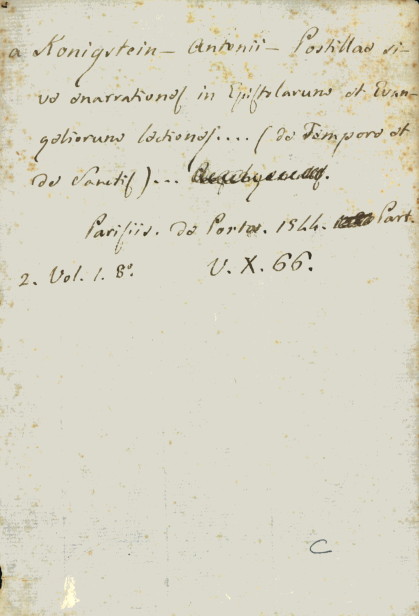 a Konigstein — Antonii — Postillae si-
ve enarrationes in Epistolarum et Evan-
geliorum lectiones.... (de Tempore et
de Sanctis)...
Parisiis. de Porta. 1544. Part.
2. Vol. 1. 8º. V. X. 66.
C